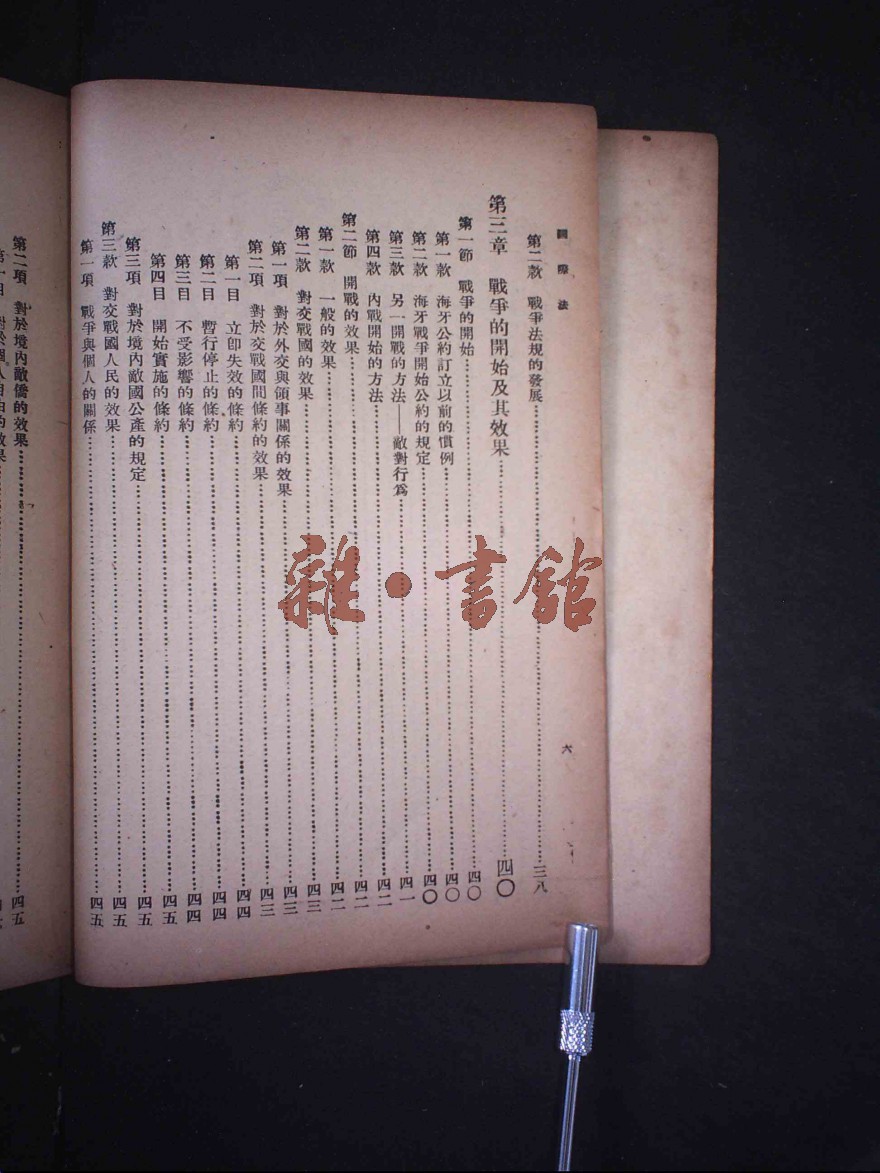 國際法
六
第二款 戰爭法規的發展……三八
第三章 戰爭的開始及其效果……四〇
第一節 戰爭的開始……四〇
第一款 海牙公約訂立以前的慣例……四〇
第二款 海牙戰爭開始公約的規定……四〇
第三款 另一開戰的方法——敵對行爲……四一
第四款 內戰開始的方法……四二
第二節 開戰的效果……四二
第一款 一般的效果……四二
第二款 對交戰國的效果……四三
第一項 對於外交與領事關係的效果……四三
第二項 對於交戰國間條約的效果……四三
第一目 立卽失效的條約……四四
第二目 暫行停止的條約……四四
第三目 不受影響的條約……四四
第四目 開始實施的條約……四五
第三項 對於境內敵國公產的規定……四五
第三款 對交戰國人民的效果……四五
第一項 戰爭與個人的關係……四五
第二項 對於境內敵僑的效果……四五
第一目 對於個人自由的效果
雜·書館